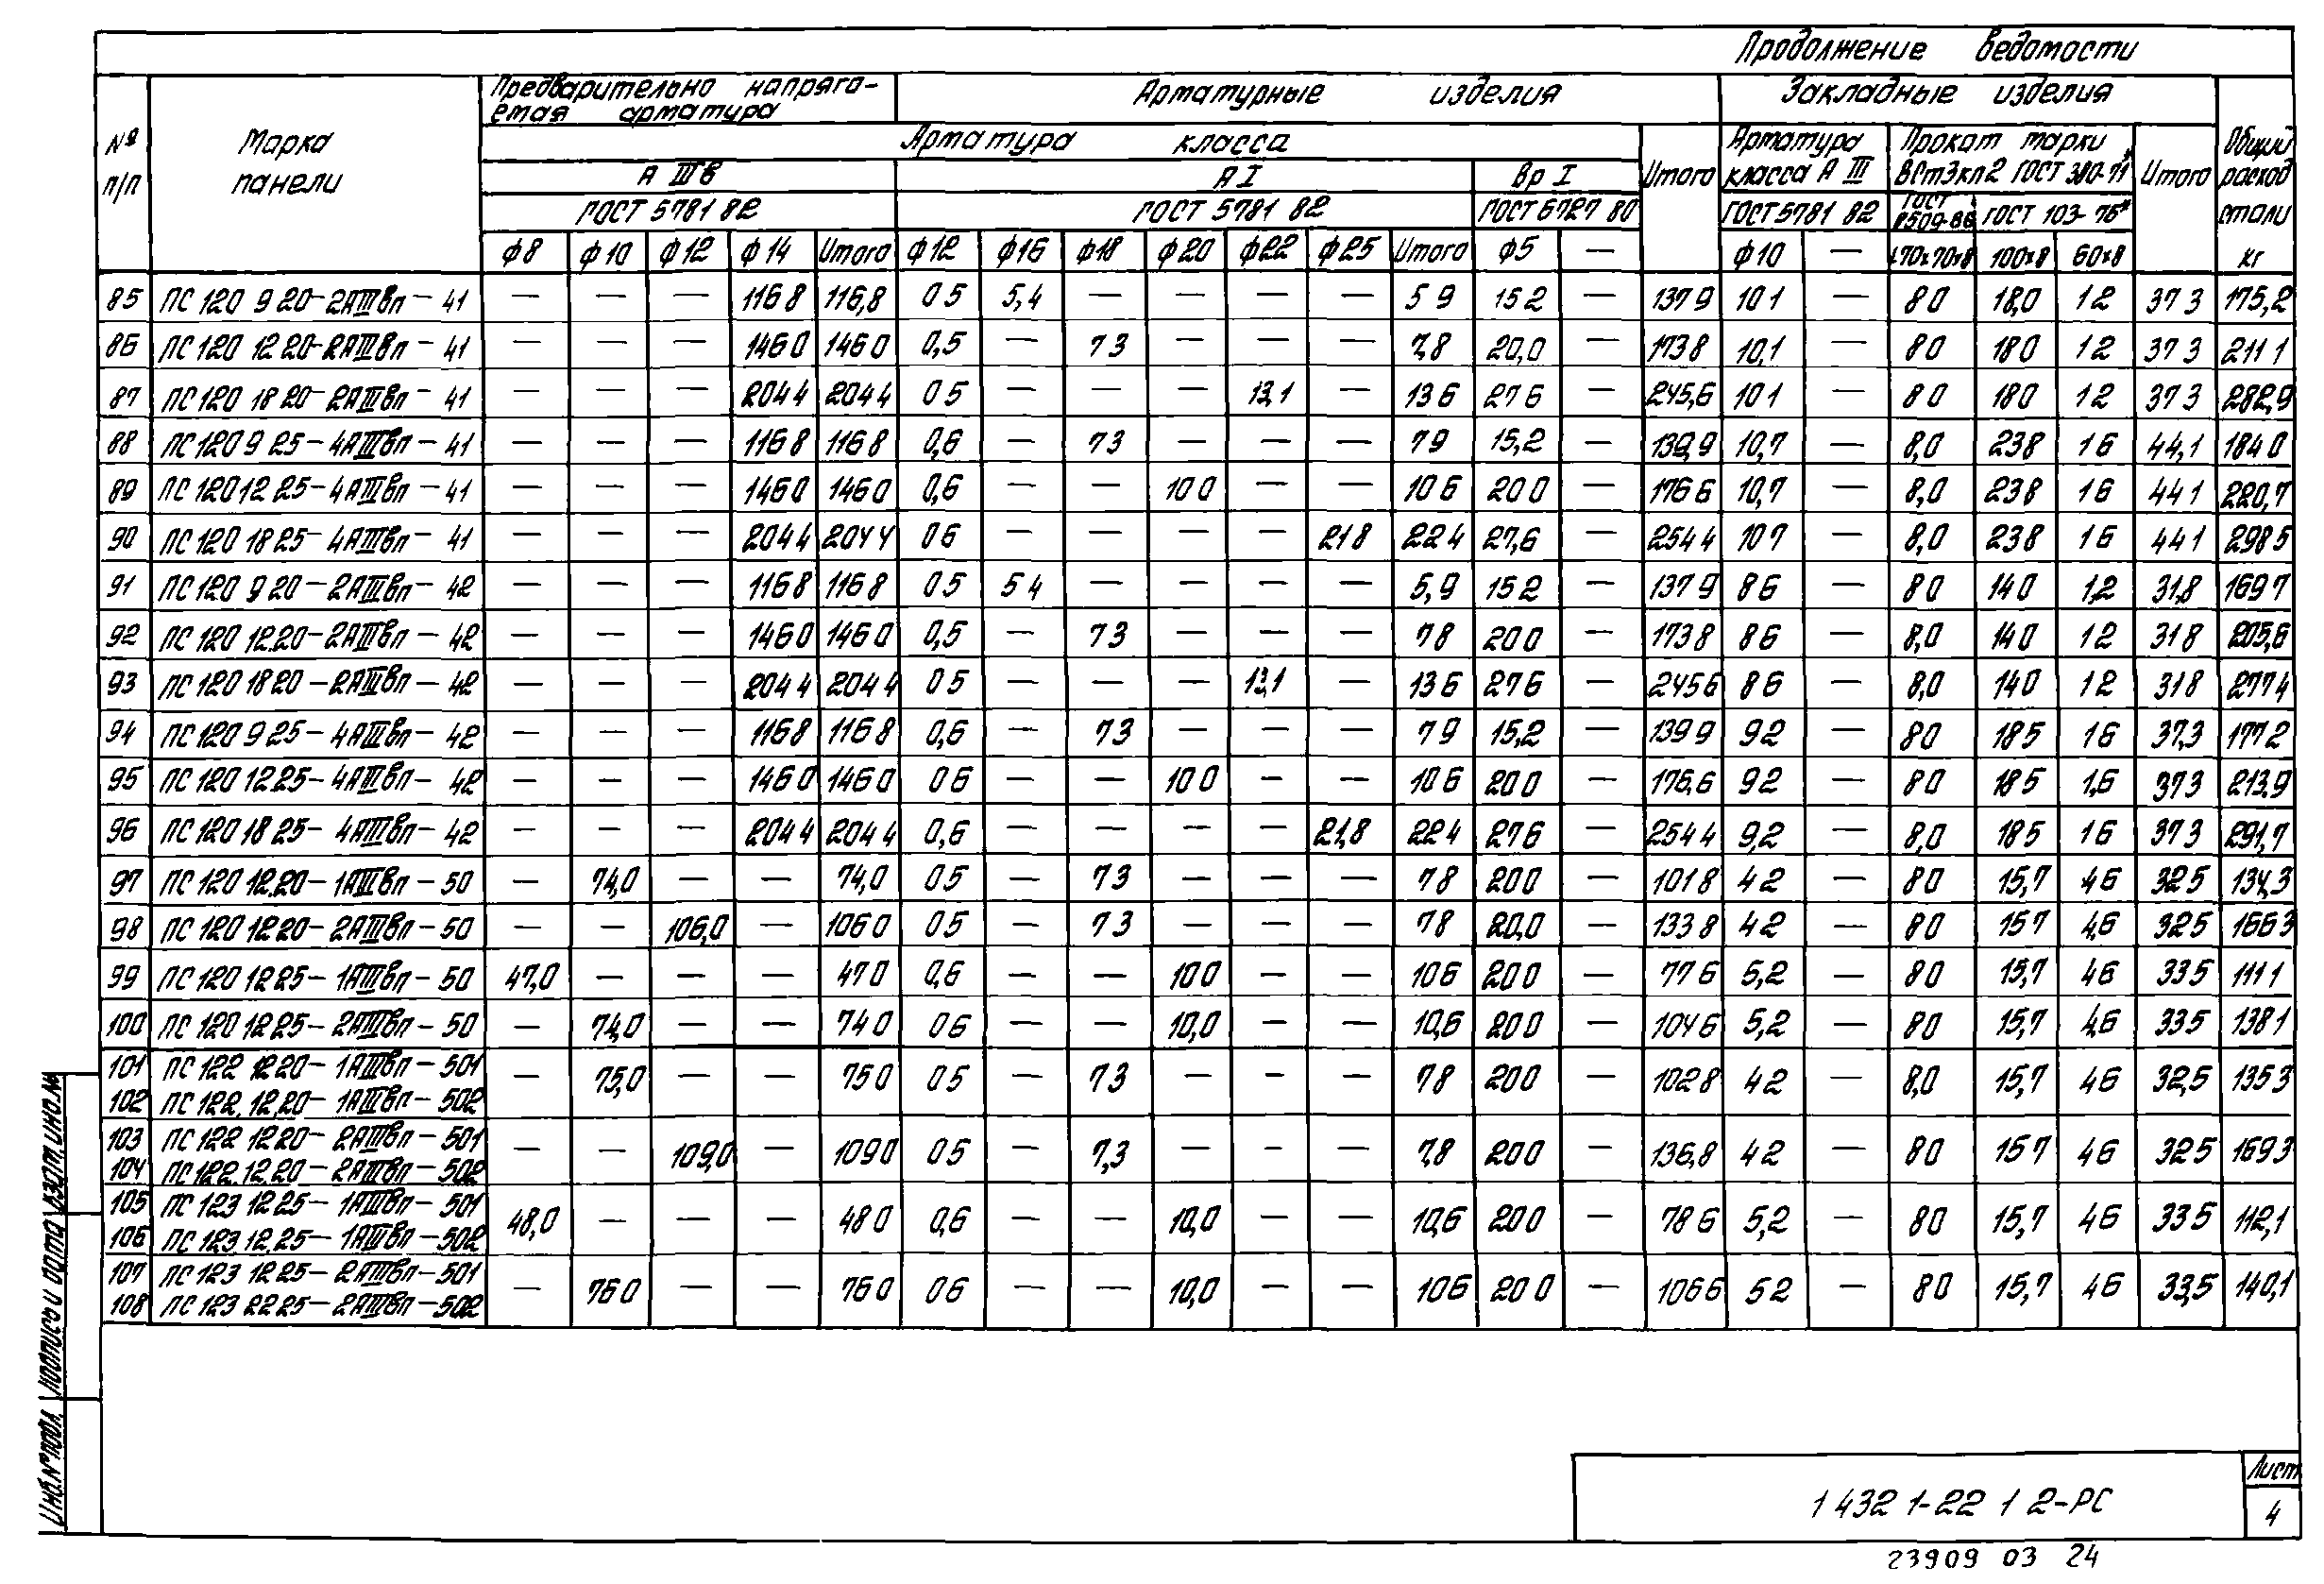 Продолжение ведомости
№ п/п
Марка панели
Предварительно напряга-
емая арматура
Арматурные изделия
Закладные изделия
Общий расход стали кг
Арматура класса
Итого
Арматура класса А III
Прокат марки ВСт3кп2 ГОСТ 380-71*
Итого
А IIIв
А I
Вр I
ГОСТ 5781 82
ГОСТ 5781 82
ГОСТ 6727 80
ГОСТ 5781 82
ГОСТ 8509-86
ГОСТ 103-76*
ф8 ф10 ф12 ф14 Итого ф12 ф16 ф18 ф20 ф22 ф25 Итого ф5 — ф10 — L70×70×8 100×8 60×8
85 ПС 120 9 20-2АIIIвп-41 — — — 116 8 116,8 0 5 5,4 — — — — 5 9 15 2 — 137 9 10 1 — 8 0 18,0 1 2 37 3 175,2
86 ПС 120 12 20-2АIIIвп-41 — — — 146 0 146 0 0,5 — 7 3 — — — 7,8 20,0 — 173 8 10,1 — 8 0 18 0 1 2 37 3 211 1
87 ПС 120 18 20-2АIIIвп-41 — — — 204 4 204 4 0 5 — — — 13,1 — 13 6 27 6 — 245,6 10 1 — 8 0 18 0 1 2 37 3 282,9
88 ПС 120 9 25-4АIIIвп-41 — — — 116 8 116 8 0,6 — 7 3 — — — 7 9 15,2 — 139,9 10,7 — 8,0 23 8 1 6 44,1 184 0
89 ПС 120 12 25-4АIIIвп-41 — — — 146 0 146 0 0,6 — — 10 0 — — 10 6 20 0 — 176 6 10,7 — 8,0 23 8 1 6 44 1 220,7
90 ПС 120 18 25-4АIIIвп-41 — — — 204 4 204 4 0 6 — — — — 21 8 22 4 27,6 — 254 4 10 7 — 8,0 23 8 1 6 44 1 298 5
91 ПС 120 9 20-2АIIIвп-42 — — — 116 8 116 8 0 5 5 4 — — — — 5,9 15 2 — 137 9 8 6 — 8 0 14 0 1,2 31,8 169 7
92 ПС 120 12.20-2АIIIвп-42 — — — 146 0 146 0 0,5 — 7 3 — — — 7 8 20 0 — 173 8 8 6 — 8,0 14 0 1 2 31 8 205,6
93 ПС 120 18 20-2АIIIвп-42 — — — 204 4 204 4 0 5 — — — 13,1 — 13 6 27 6 — 245 6 8 6 — 8,0 14 0 1 2 31 8 277 4
94 ПС 120 9 25-4АIIIвп-42 — — — 116 8 116 8 0,6 — 7 3 — — — 7 9 15,2 — 139 9 9 2 — 8 0 18 5 1 6 37,3 177 2
95 ПС 120 12.25-4АIIIвп-42 — — — 146 0 146 0 0 6 — — 10 0 — — 10 6 20 0 — 176,6 9 2 — 8 0 18 5 1,6 37 3 213,9
96 ПС 120 18 25-4АIIIвп-42 — — — 204 4 204 4 0,6 — — — — 21,8 22 4 27 6 — 254 4 9,2 — 8,0 18 5 1 6 37 3 291,7
97 ПС 120 12.20-1АIIIвп-50 — 74,0 — — 74,0 0 5 — 7 3 — — — 7 8 20 0 — 101 8 4 2 — 8 0 15,7 4 6 32 5 134,3
98 ПС 120 12 20-2АIIIвп-50 — — 106,0 — 106 0 0 5 — 7 3 — — — 7 8 20,0 — 133 8 4 2 — 8 0 15 7 4,6 32 5 166 3
99 ПС 120 12 25-1АIIIвп-50 47,0 — — — 47 0 0,6 — — 10 0 — — 10 6 20 0 — 77 6 5,2 — 8 0 15,7 4 6 33 5 111 1
100 ПС 120 12 25-2АIIIвп-50 — 74,0 — — 74 0 0 6 — — 10,0 — — 10,6 20 0 — 104 6 5,2 — 8 0 15,7 4,6 33 5 138 1
101 ПС 122 12 20-1АIIIвп-501
102 ПС 122.12.20-1АIIIвп-502
— 75,0 — — 75 0 0 5 — 7 3 — — — 7 8 20 0 — 102 8 4 2 — 8,0 15,7 4 6 32,5 135 3
103 ПС 122 12 20-2АIIIвп-501
104 ПС 122.12.20-2АIIIвп-502
— — 109,0 — 109 0 0 5 — 7,3 — — — 7,8 20 0 — 136,8 4 2 — 8 0 15 7 4 6 32 5 169 3
105 ПС 123 12 25-1АIIIвп-501
106 ПС 123 12.25-1АIIIвп-502
48,0 — — — 48 0 0,6 — — 10,0 — — 10,6 20 0 — 78 6 5,2 — 8 0 15,7 4 6 33 5 112,1
107 ПС 123 12 25-2АIIIвп-501
108 ПС 123 22 25-2АIIIвп-502
— 76 0 — — 76 0 0 6 — — 10,0 — — 10 6 20 0 — 106 6 5 2 — 8 0 15,7 4 6 33,5 140,1
Инв.№ подл. Подпись и дата Взам.инв.№
1 432 1-22 1 2-РС
Лист
4
23909 03 24